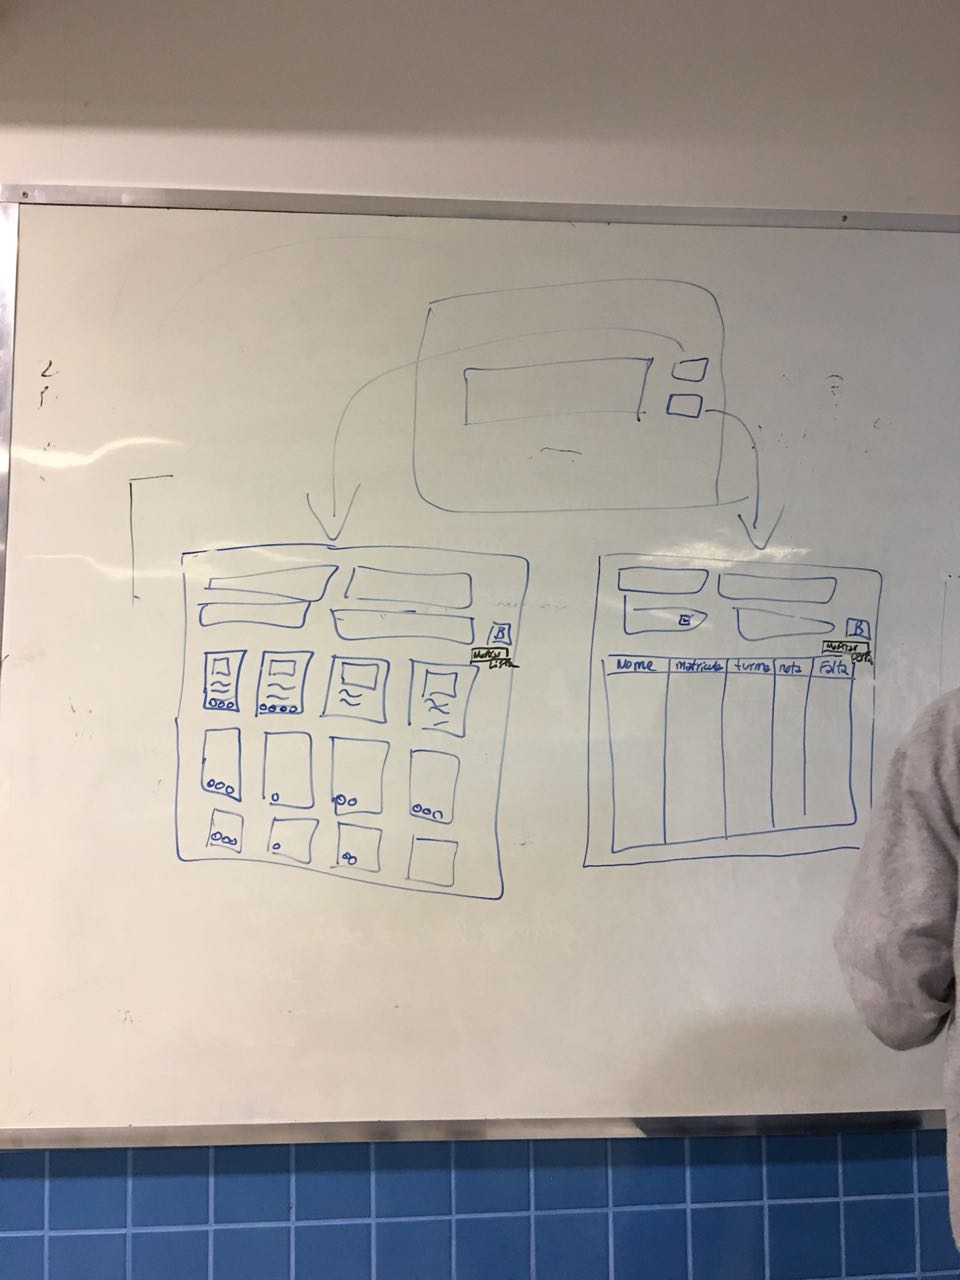 B
Mostrar
Lista
B
Mostrar
Nome matricula turma nota Falta